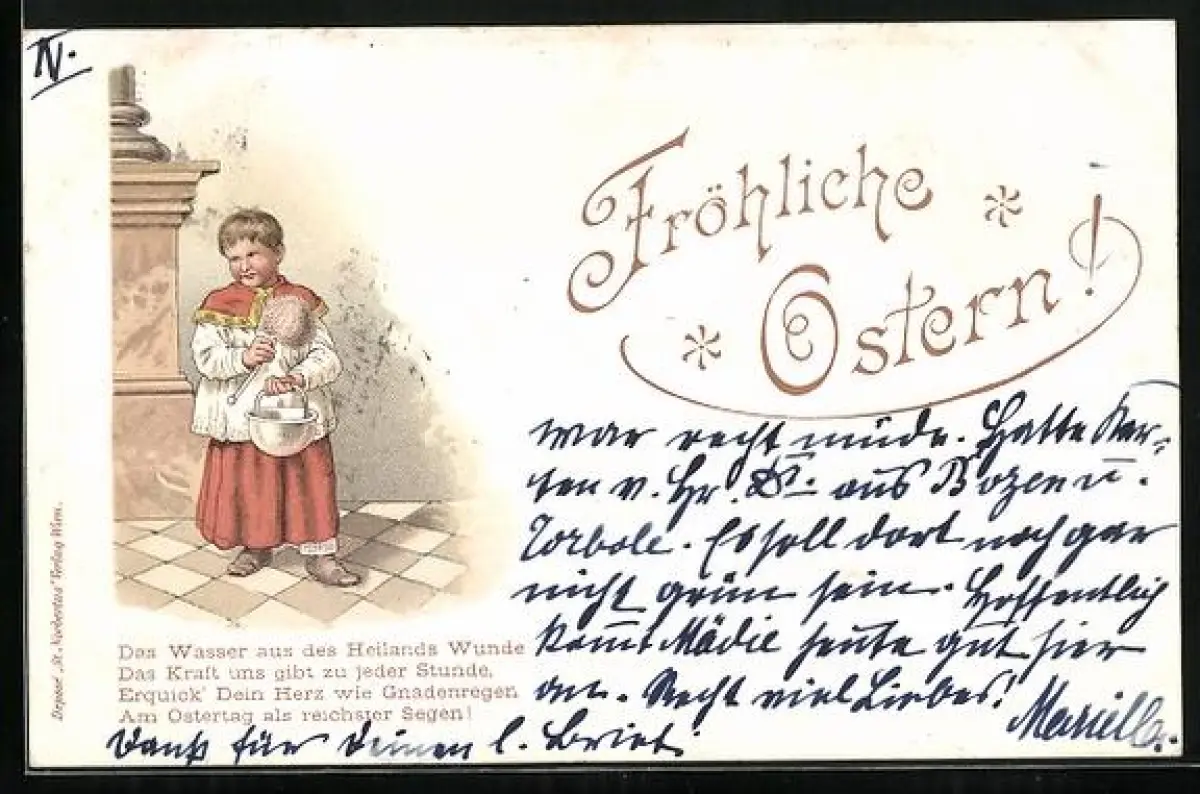 IV.
Fröhliche
Ostern!
war recht müde. Hatte Kar-
ten v. Hr. Dr. aus Bozen u.
Torbole. Es soll dort noch gar
nicht grün sein. Hoffentlich
kommt Mädie heute gut hier
an. Recht viel Liebes!
Mariella.
Das Wasser aus des Heilands Wunde
Das Kraft uns gibt zu jeder Stunde,
Erquick' Dein Herz wie Gnadenregen
Am Ostertag als reichster Segen!
Dank für Deinen l. Brief.
Depose „St. Norbertus" Verlag Wien.